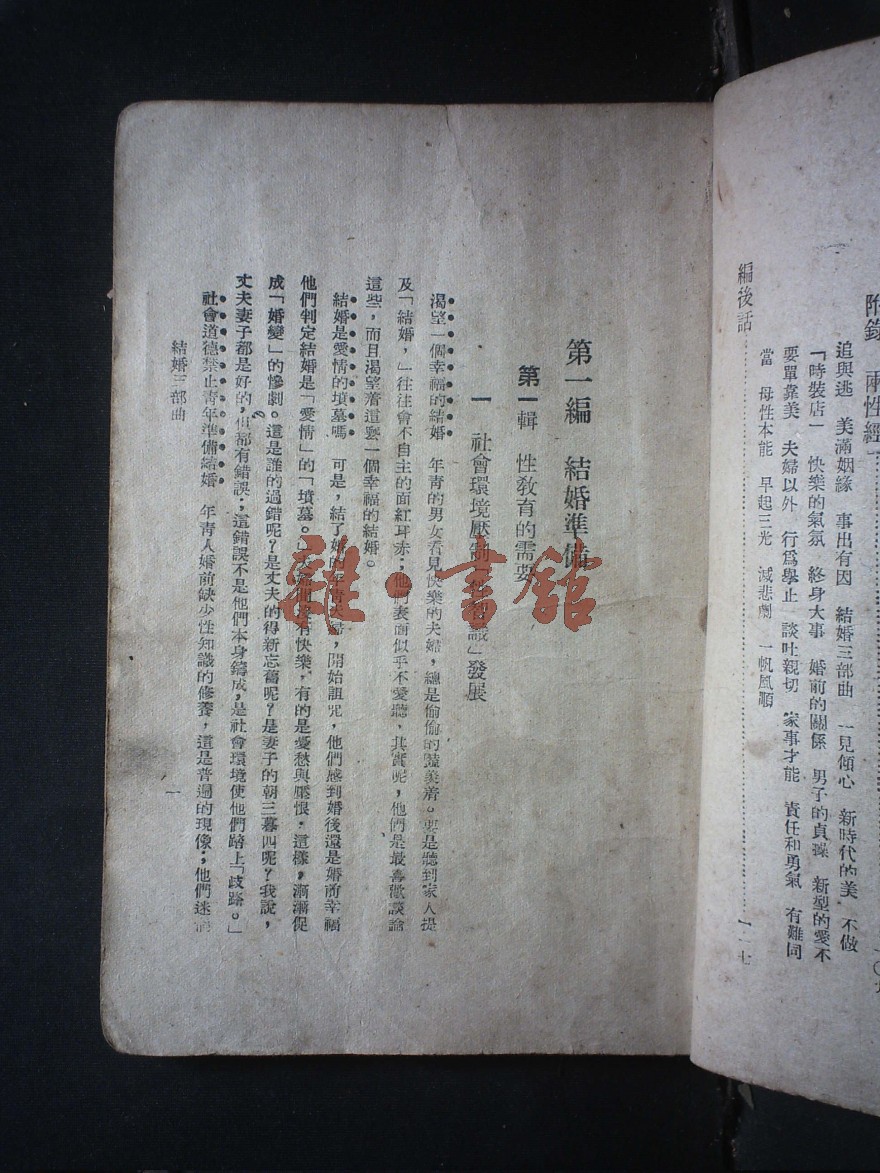 附錄 兩性經
追與逃 美滿姻緣 事出有因 結婚三部曲 一見傾心 新時代的美 不做
「時裝店」 快樂的氣氛 終身大事 婚前的關係 男子的貞操 新型的愛不
要單靠美 夫婦以外 行為舉止 談吐親切 家事才能 責任和勇氣 有難同
當 母性本能 早起三光 減悲劇 一帆風順
編後話
第一編 結婚準備
第一輯 性教育的需要
一 社會環境壓制「性智識」發展
渴望一個幸福的結婚 年青的男女看見快樂的夫婦,總是偷偷的豔羨着。要是聽到家人提
及「結婚,」往往會不自主的面紅耳赤;他們表面似乎不愛聽,其實呢,他們是最喜歡談論
這些,而且渴望着這麼一個幸福的結婚。
結婚是愛情的墳墓嗎 可是,結了婚的年青夫婦,開始詛咒,他們感到婚後還是婚前幸福
他們判定結婚是「愛情」的「墳墓。」夫婦間沒有快樂,有的是憂愁與嫉恨。這樣,漸漸促
成「婚變」的慘劇。這是誰的過錯呢?是丈夫的得新忘舊呢?是妻子的朝三暮四呢?我說,
丈夫妻子都是好的,但都有錯誤;這錯誤不是他們本身鑄成,是社會環境使他們踏上「歧路。」
社會道德禁止青年準備結婚 年青人婚前缺少性知識的修養,這是普遍的現像;他們迷
結婚三部曲
一
雜·書館